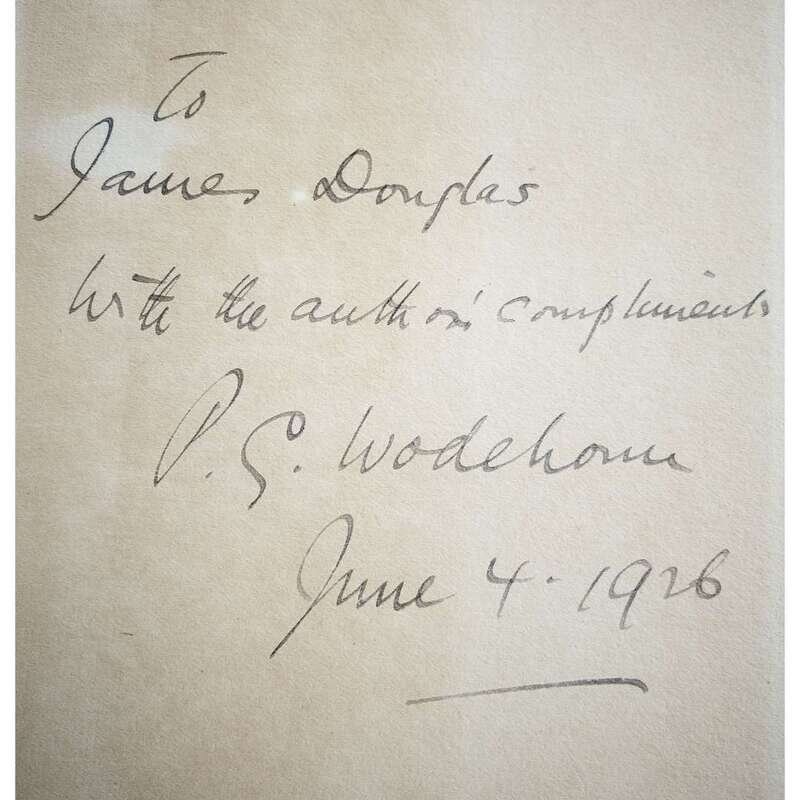 To
James Douglas
with the author's compliments
P. G. Wodehouse
June 4. 1926